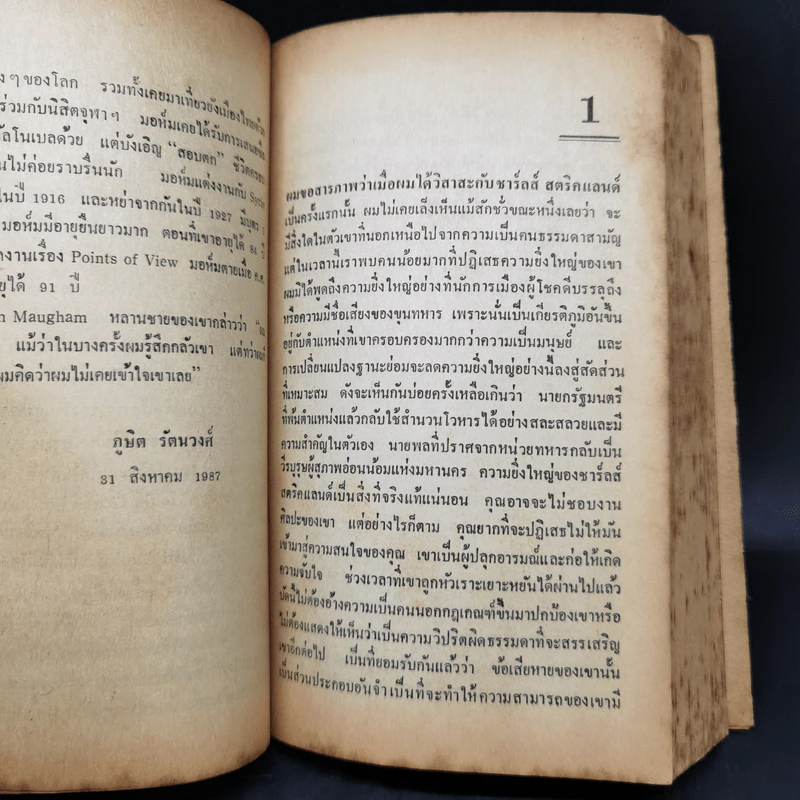 งๆของโลก รวมทั้งเคยมาเที่ยวยังเมืองไทย
ร่วมกับนิสิตจุฬาฯ มอห์มเคยได้รับการเสนอชื่อ
ัลโนเบลด้วย แต่บังเอิญ “สอบตก”
นไม่ค่อยราบรื่นนัก มอห์มแต่งงานกับ
ในปี 1916 และหย่าจากกันในปี 1927
มอห์มมีอายุยืนยาวมาก ตอนที่เขาอายุได้ 84 ปี
งานเรื่อง Points of View มอห์มตายเมื่อ ค.ศ.
ยุได้ 91 ปี
n Maugham หลานชายของเขากล่าวว่า
แม้ว่าในบางครั้งผมรู้สึกกลัวเขา
ผมคิดว่าผมไม่เคยเข้าใจเขาเลย”
ภูษิต รัตนวงศ์
31 สิงหาคม 1987
1
ผมขอสารภาพว่าเมื่อผมได้วิสาสะกับชาร์ลส์ สตริคแลนด์
เป็นครั้งแรกนั้น ผมไม่เคยเล็งเห็นแม้สักชั่วขณะหนึ่งเลยว่า จะ
มีสิ่งใดในตัวเขาที่นอกเหนือไปจากความเป็นคนธรรมดาสามัญ
แต่ในเวลานี้เราพบคนน้อยมากที่ปฏิเสธความยิ่งใหญ่ของเขา
ผมมิได้พูดถึงความยิ่งใหญ่อย่างที่นักการเมืองผู้โชคดีบรรลุถึง
หรือความมีชื่อเสียงของขุนทหาร เพราะนั่นเป็นเกียรติภูมิอันขึ้น
อยู่กับตำแหน่งที่เขาครอบครองมากกว่าความเป็นมนุษย์ และ
การเปลี่ยนแปลงฐานะย่อมจะลดความยิ่งใหญ่อย่างนี้ลงสู่สัดส่วน
ที่เหมาะสม ดังจะเห็นกันบ่อยครั้งเหลือเกินว่า นายกรัฐมนตรี
ที่พ้นตำแหน่งแล้วกลับใช้สำนวนโวหารได้อย่างสละสลวยและมี
ความสำคัญในตัวเอง นายพลที่ปราศจากหน่วยทหารกลับเป็น
วีรบุรุษผู้สุภาพอ่อนน้อมแห่งมหานคร ความยิ่งใหญ่ของชาร์ลส์
สตริคแลนด์เป็นสิ่งที่จริงแท้แน่นอน คุณอาจจะไม่ชอบงาน
ศิลปะของเขา แต่อย่างไรก็ตาม คุณยากที่จะปฏิเสธไม่ให้มัน
เข้ามาสู่ความสนใจของคุณ เขาเป็นผู้ปลุกอารมณ์และก่อให้เกิด
ความจับใจ ช่วงเวลาที่เขาถูกหัวเราะเยาะหยันได้ผ่านไปแล้ว
บัดนี้ไม่ต้องอ้างความเป็นคนนอกกฎเกณฑ์ขึ้นมาปกป้องเขาหรือ
ไม่ต้องแสดงให้เห็นว่าเป็นความวิปริตผิดธรรมดาที่จะสรรเสริญ
เขาอีกต่อไป เป็นที่ยอมรับกันแล้วว่า ข้อเสียหายของเขานั้น
เป็นส่วนประกอบอันจำเป็นที่จะทำให้ความสามารถของเขามี